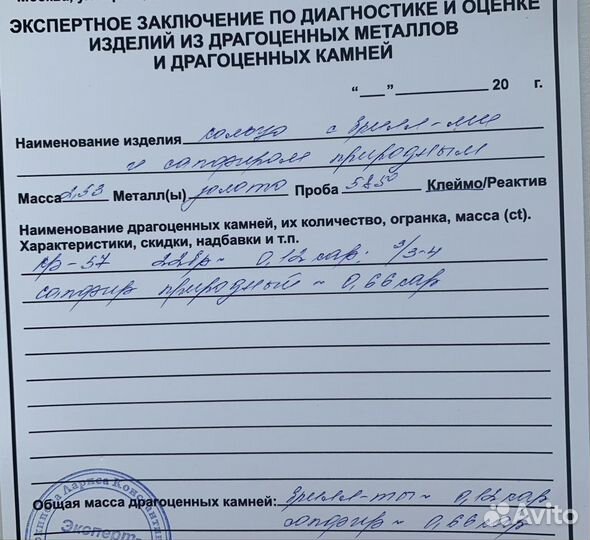 ЭКСПЕРТНОЕ ЗАКЛЮЧЕНИЕ ПО ДИАГНОСТИКЕ И ОЦЕНКЕ
ИЗДЕЛИЙ ИЗ ДРАГОЦЕННЫХ МЕТАЛЛОВ
И ДРАГОЦЕННЫХ КАМНЕЙ
“___” ____________ 20 г.
Наименование изделия кольцо с брилл-ми
и сапфиром природным
Масса 2,53 Металл(ы) золото Проба 585° Клеймо/Реактив
Наименование драгоценных камней, их количество, огранка, масса (ct).
Характеристики, скидки, надбавки и т.п.
Кр-57 22бр ~ 0,12 кар; 3/3-4
сапфир природный ~ 0,66 кар
Общая масса драгоценных камней: брилл-ты ~ 0,12 кар
сапфир ~ 0,66 кар
Лариса Константин
Эксперт-
Avito